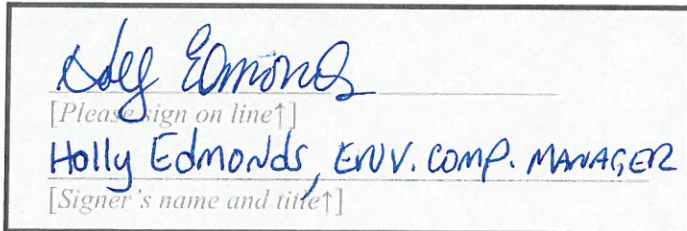 Holly Edmonds
[Please sign on line↑]
Holly Edmonds, ENV. COMP. MANAGER
[Signer's name and title↑]